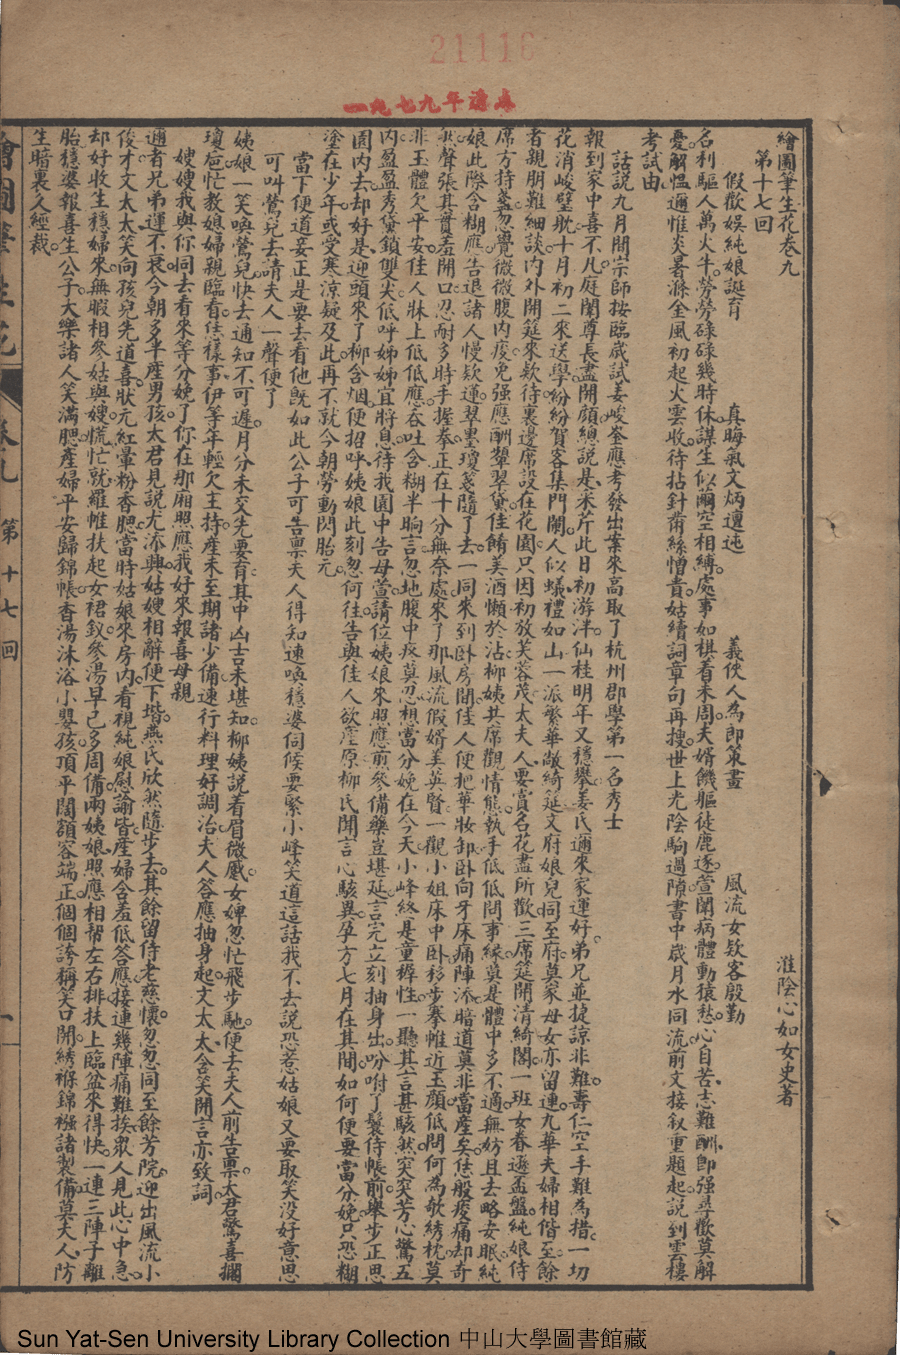 21116
一九七九年清点
繪圖筆生花卷九
第十七回
淮陰心如女史著
假歡娛純娘誕育 真晦氣文炳邅迍 義俠人為郎策畫 風流女欵客殷勤
名利驅人萬火牛。勞勞碌碌幾時休。謀生似繭空相縛。處事如棋看未周。夫婿饑軀徒鹿逐。萱闈病體動猿愁。心自苦。志難酬。即强尋歡莫解
憂。解慍邇惟炎暑滌。金風初起火雲收。待拈針黹絲憎貴。姑續詞章句再搜。世上光陰駒過隙。書中歲月水同流。前文接叙重題起。說到雲樓
考試由。
話說九月間宗師按臨歲試姜峻峯應考發出案來高取了杭州郡學第一名秀士
報到家中喜不凡。庭闈尊長盡開顏。總說是采芹此日初游泮。仙桂明年又穩攀。姜氏邇來家運好。弟兄並捷諒非難。壽仁空手難為措。一切
花消峻璧肱。十月初二來送學。紛紛賀客集門闌。人似蟻。禮如山。一派繁華敞綺筵。文府娘兒同至府。莫家母女亦留連。尤華夫婦相偕至。餘
者親朋難細談。內外開筵來欵待。裏邊席設在花園。只因初放芙蓉茂。太夫人要賞名花盡所歡。三席筵開清綺閣。一班女眷遜盃盤。純娘侍
席方持盞。忽覺微微腹內痠。免强應酬顰翠黛。佳餚美酒懶於沾。柳姨其席觀情態。執手低低問事緣。莫是體中多不適。無妨且去略安眠。純
娘此際含糊應。告退諸人慢欵運。翠墨瓊箋隨了去。一同來到卧房間。佳人便把華妝卸。卧向牙床痛陣添。暗道莫非當產矣。恁般痠痛却奇
聲張其實羞開口。忍耐多時手握拳。正在十分無奈處。來了那風流假婿美英賢。一觀小姐床中卧。移步搴帷近玉顏。低問何為欹綉枕。莫
非玉體欠平安。佳人牀上低低應。吞吐含糊半晌言。忽地腹中疼莫忍。想當分娩在今天。小峰終是童穉性。一聽其言甚駭然。突突芳心驚五
內。盈盈秀黛鎖雙尖。低呼姊姊宜將息。待我園中告母萱。請位姨娘來照應。煎參備藥豈堪延。言完立刻抽身出。吩咐了鬟侍帳前。舉步正思
園內去。却好是迎頭來了柳含烟。便招呼姨娘此刻忽何往。告與佳人欲產原。柳氏聞言心駭異。孕方七月在其間。如何便要當分娩。只恐糊
塗在少年。或受寒涼疑及此。再不就今朝勞動閃胎元。
當下便道妾正是要去看他既如此公子可告禀夫人得知速喚穩婆伺候要緊小峰笑道這話我不去説恐惹姑娘又要取笑沒好意思
可叫鶯兒去請夫人一聲便了
姨娘一笑喚鶯兒。快去通知不可遲。月分未交先要育。其中凶吉未堪知。柳姨説着眉微蹙。女婢忽忙飛步馳。便去夫人前告禀。太君驚喜擱
瓊巵。忙教媳婦親臨看。恁樣事伊等年輕欠主持。產未至期諸少備。速行料理好調治。夫人答應抽身起。文太太含笑開言亦致詞。
嫂嫂我與你同去看來等分娩了你在那廂照應我好來報喜母親
邇者兄弟運不衰。今朝多半產男孩。太君見説尤添興。姑嫂相辭便下堦。燕氏欣然隨步去。其餘留侍老慈懷。忽忽同至餘芳院。迎出風流小
俊才。文太太笑向孩兒先道喜。狀元紅暈粉香腮。當時姑娘來房內。看視純娘慰諭皆。產婦含羞低答應。接連幾陣痛難挨。眾人見此心中急。
却好收生穩婦來。無暇相參姑與嫂。慌忙就羅帷扶起女裙釵。參湯早已多周備。兩姨娘照應相幫左右排。扶上臨盆來得快。一連三陣子離
胎。穩婆報喜生公子。大樂諸人笑滿腮。產婦平安歸錦帳。香湯沐浴小嬰孩。頂平闊額容端正。個個誇稱笑口開。綉褓錦襁諸製備。莫夫人防
生暗裏久經裁。
繪圖筆生花 卷九 第十七回 一
Sun Yat-Sen University Library Collection 中山大學圖書館藏